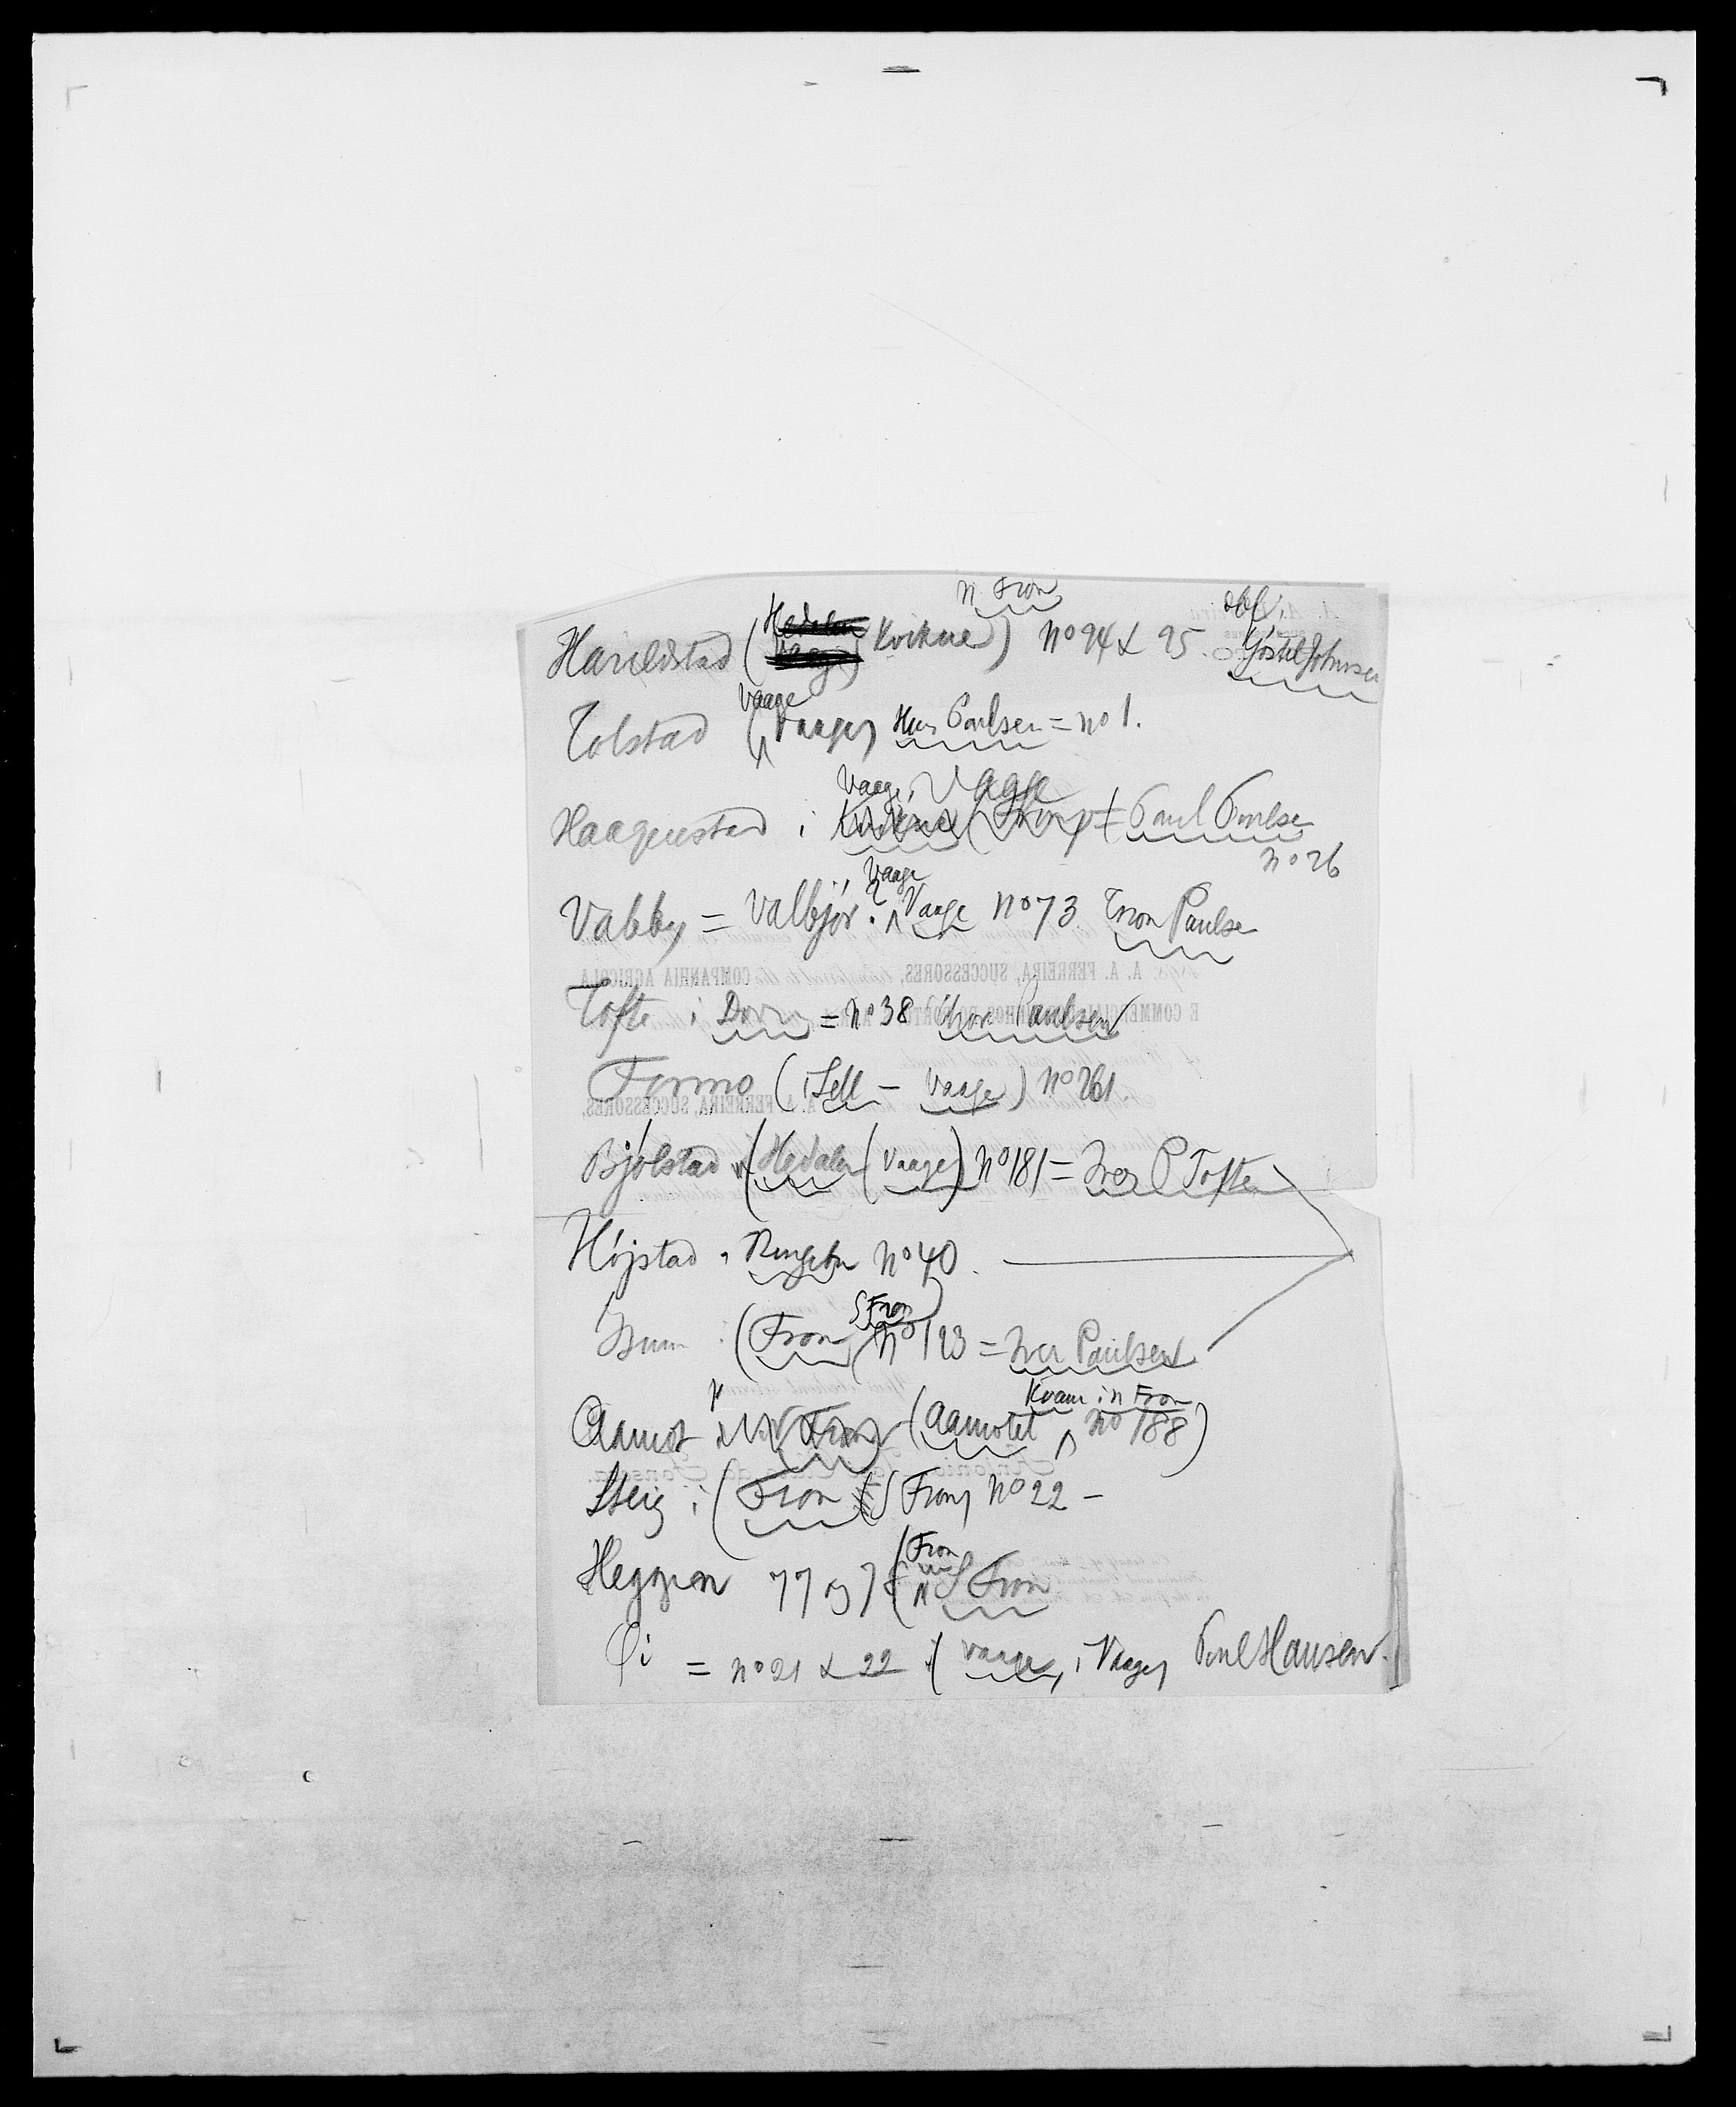 n. Fron
Harildstad (Hedalen Vaage) Kvikne) No 94 & 95. Göstel Johnsen
Vaage
Tolstad (Vaage) Hans Paulsen = no 1.
Vaage, Vaage
Haagenstad i Kvikne (Fron) = Paul Poulse
no 26
Vaage
Valbby = Valbjör. i Vaage No 73 Tron Paulse
Tofte i Dovre = No 38 Thor Paulsen
Formo (i Sell - Vaage) No 261.
Bjölstad i (Hedalen (Vaage) No 181 = Iver P Tofte
Höjstad i Ringebu No 40.
S Fron
(Fron) No 123 = Iver Paulsen
Kvam i N Fron
Aamot i (Fron) (Aamotet No 188)
Steig i (Fron (S Fron) No 22 -
Fron
Heggion 77 og 78 S Fron
Öi = No 21 & 22 (Vaage, i Vaage) Poul Hansen.
A. A. FERREIRA, SUCCESSORES, COMPANHIA AGRICOLA
A. A. FERREIRA, SUCCESSORES,